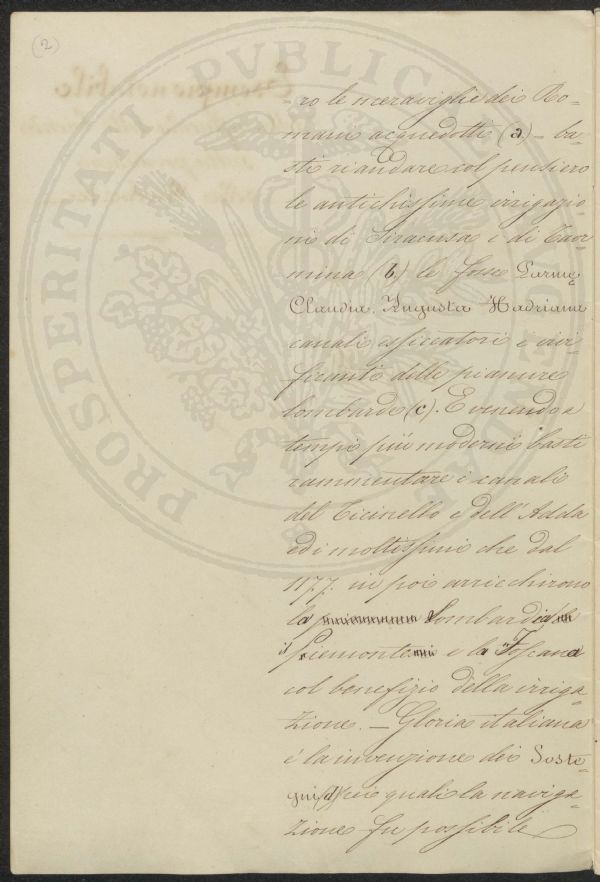 (2)
- ro le meraviglie dei Ro=
mani acquedotti (a) - ba=
sti riandare col pensiero
le antichissime irrigazio=
ni di Siracusa e di Taor=
mina (b) le fosse
Claudia, Augusta Hadriana
canali essiccatori e vivi=
ficanti delle pianure
lombarde (c). E venendo a
tempi più moderni basti
rammentare i canali
del Ticinello e dell'Adda
ed i moltissimi che dal
1177. in poi arricchirono
la Lombardia
il Piemonte e la Toscana
col benefizio della irriga=
zione. — Gloria italiana
è la invenzione dei Soste=
gni (d) pei quali la naviga=
zione fu possibile
PROSPERITATI PVBLICAE